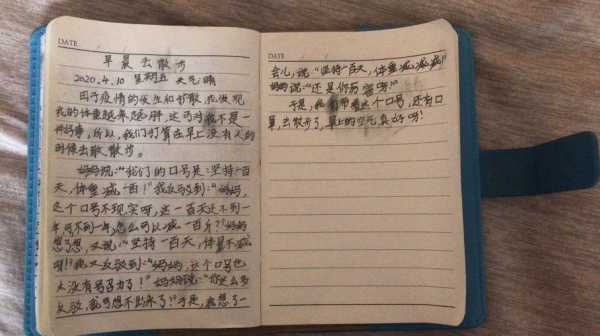 DATE
早晨去散步
2020.4.10 星期五 天气晴
由于疫情的发生和扩散,我发现
我的体重越来越胖,这可对我不是一
件好事,所以,我们打算在早上没有人的
时候去散散步。
妈妈说:“我们的口号是:坚持一百
天,体重减一百!”我反驳到:“妈妈,
这个口号不现实呀,这一百天还不到一
年呢不到一年,怎么可以减一百斤?”妈妈
想了想,又说:“坚持一百天,体重不减
呀!”我又反驳到:“妈妈,这个口号也
太没有号召力了!”妈妈说:“你这么多
反驳,我可想不出来了!”于是,我想了一
DATE
会儿,说:“坚持一百天,体重减减减!”
妈妈说:“还是你厉害呀!”
于是,我们带着这个口号,还有口
罩,去散步了,早上的空气真好呀!